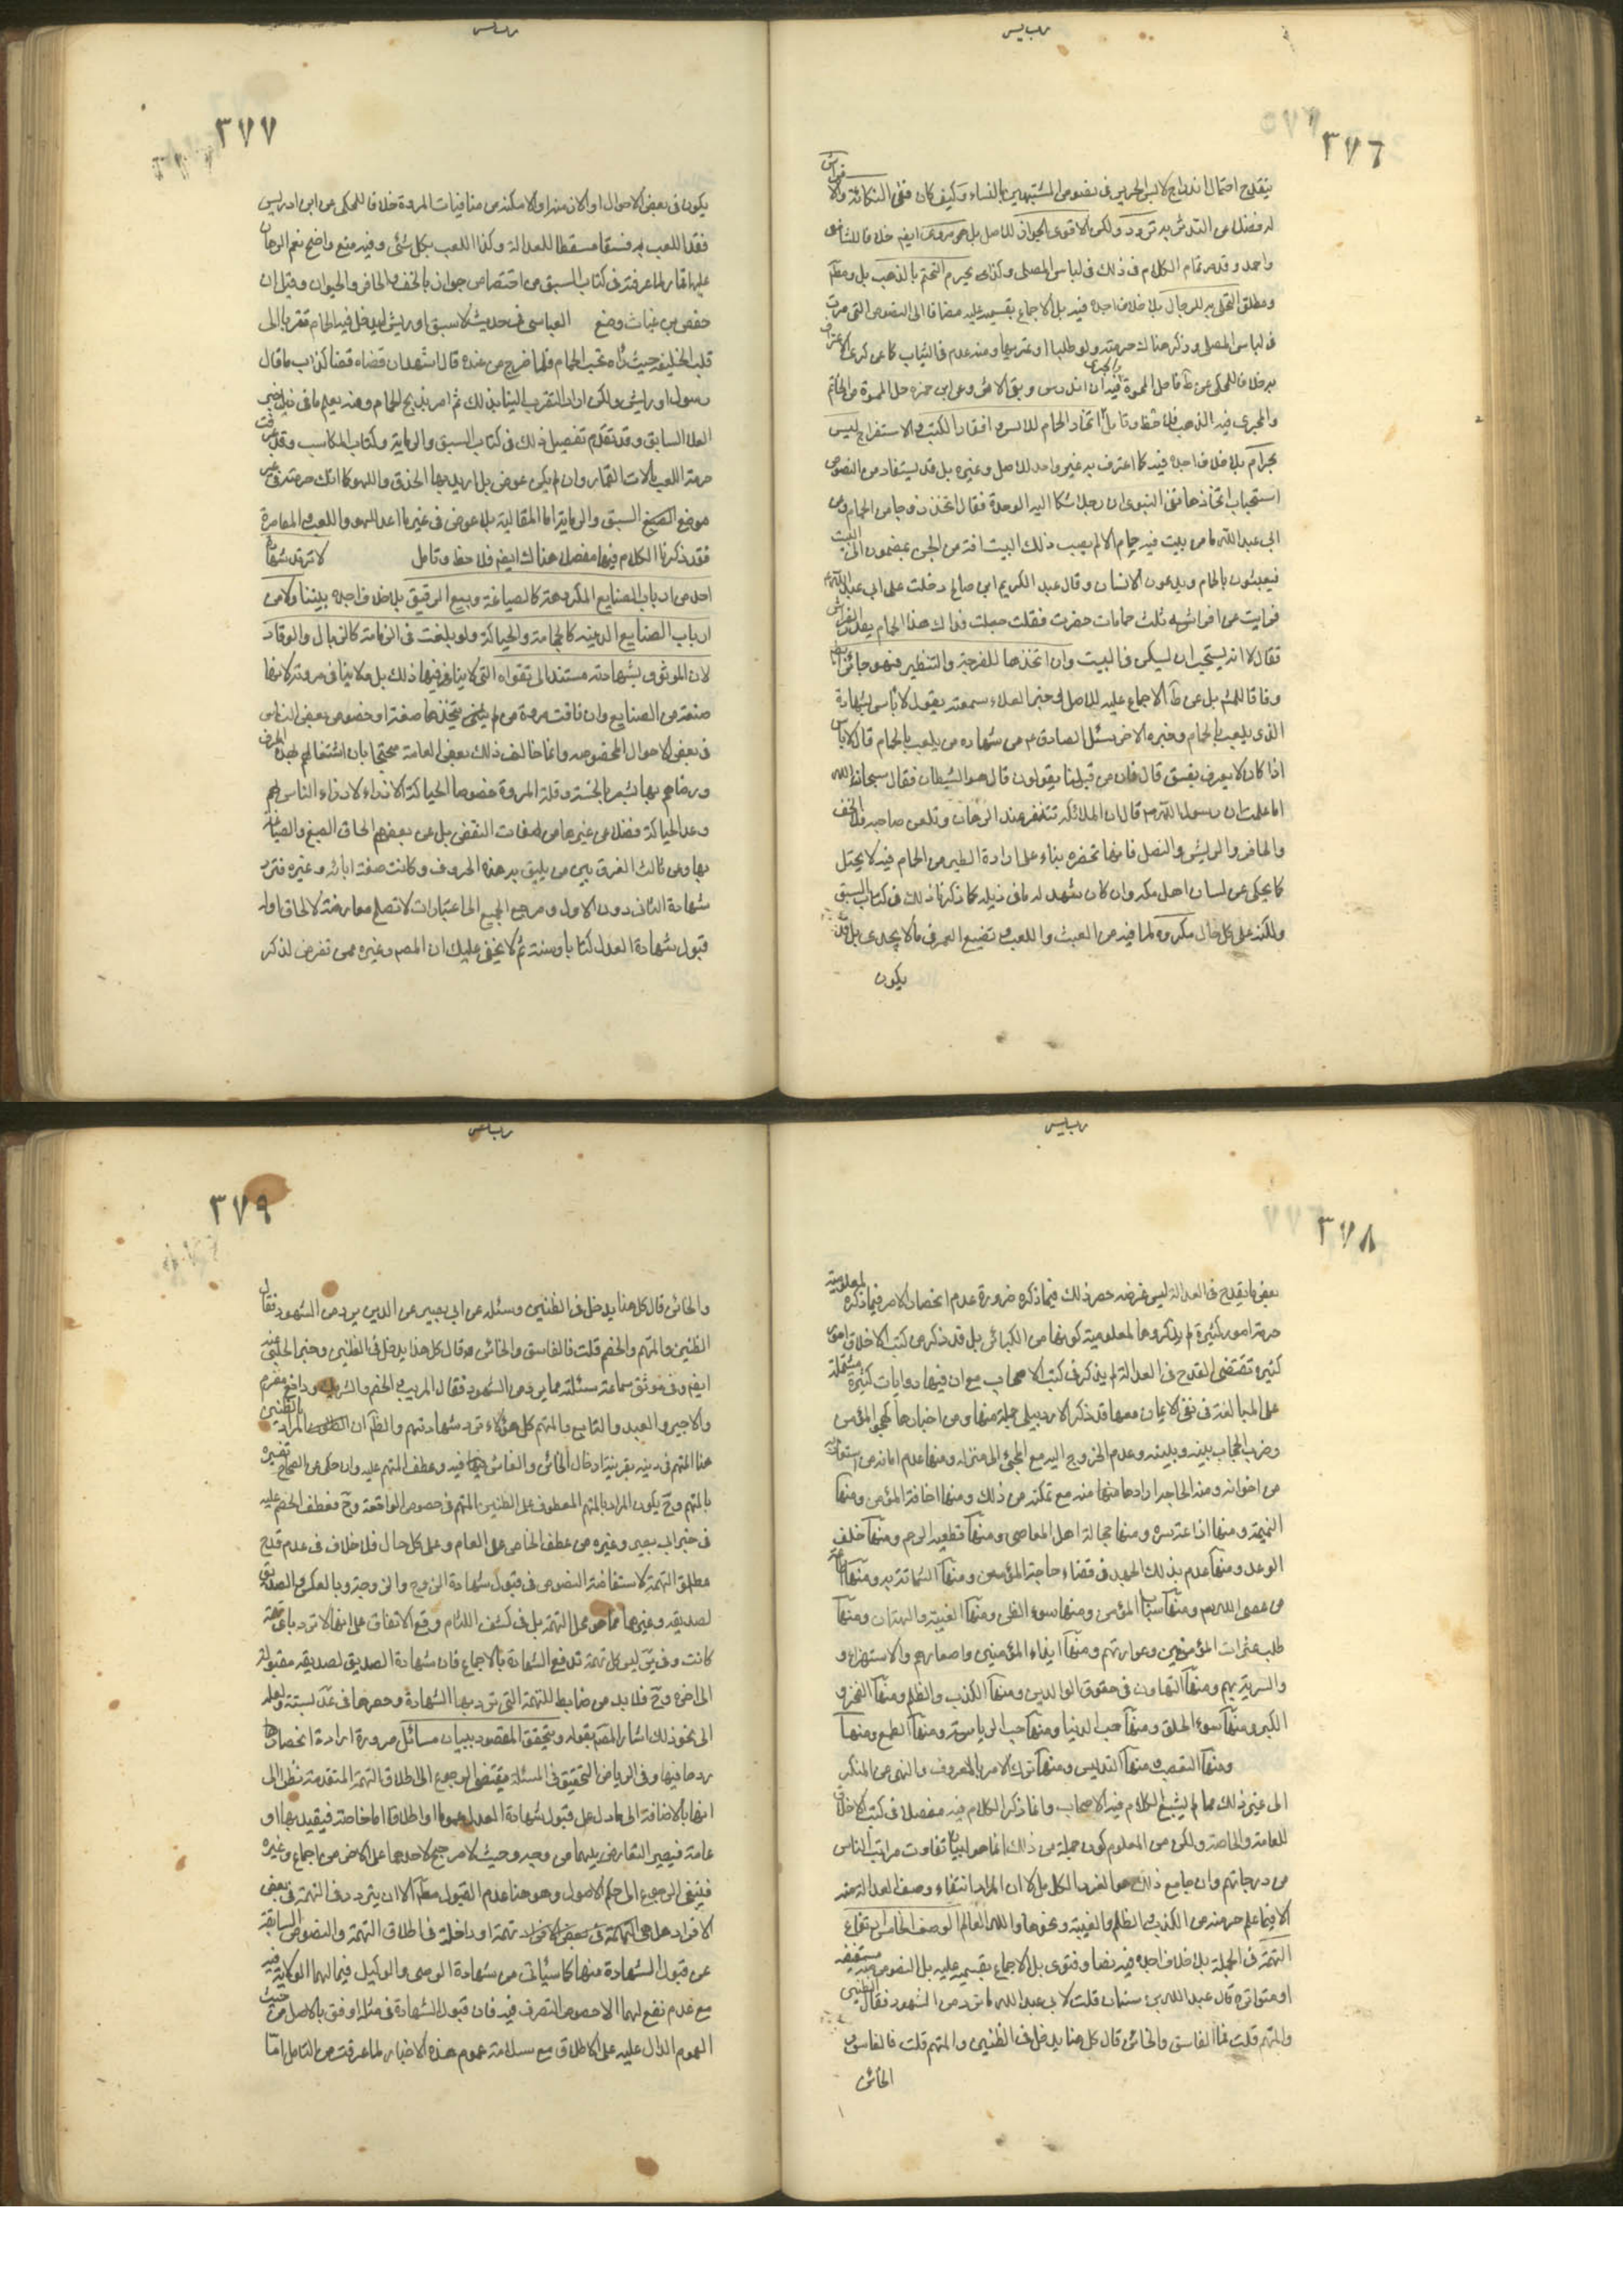 ٣٧٦
ينقدح احتمال اندراج لابس الحرير في نصوص المتشبهين بالنساء وكيف كان ففي التكائة والافتراش
له فضلا عن التدثر به تردد ولكن الاقوى الجواز للاصل بل هو مروى ايضا خلافا للشافعى
واحمد وقد مر تمام الكلام في ذلك في لباس المصلى وكذا يحرم التختم بالذهب بل ومطلق
ومطلق التحلى به للرجال بلا خلاف اجده فيه بل الاجماع بقسميه عليه مضافا الى النصوص التي مرت
في لباس المصلى وذكر هناك حرمته ولو طليا او غيرهما ومنه علم في الثياب كما عن
به خلافا للمحكى عن فاحل المموة فيه ان اندرس وبقى الاثر وعن ابن حمزه حل المموة من الخاتم
والمجرى فيه الذهب فلاحظ وتامل اتخاذ الحمام للانس وانفاذ الكتب والاستفراخ ليس
بحرام بلا خلاف اجده فيه كما اعترف به غير واحد للاصل وغيره بل قد يستفاد من النصوص
استحباب اتخاذها ففي النبوى ان رجلا شكا اليه الوحدة فقال اتخذ زوجا من الحمام وعن
ابي عبد الله ما من بيت فيه حمام الا لم يصب ذلك البيت افة من الجن سفهاء الجن البيت
فيعبثون بالحمام ويدعون الانسان وقال عبد الكريم ابن صالح دخلت على ابي عبد الله
فرايت على فراشه ثلث حمامات خضر فقلت جعلت فداك هذا الحمام يقذر الفراش
فقال لا انه يستحب ان ليسكن في البيت وان اتخذها للفرجة والتطير فهو جائز
وفاقا للمشهور بل عن الاجماع عليه للاصل في خبر العلاء سمعته يقول لا باس بشهادة
الذى يلعب بالحمام وخبره الاخر سئل الصادق عن شهاده من يلعب بالحمام قال لا باس
اذا كان لا يعرف بفسق قال فان من قبلنا يقولون قال هو الشيطان فقال سبحان الله
اما علمت ان رسول الله قال ان الملائكة لتنفر عند الرهان وتلعن صاحبه ما خلا الخف
والحافر والريش والنصل فانها تحضره بناء على ارادة الطير من الحمام فيه لا يحتمل
كما يحكى عن لسان اهل مكه وان كان يشهد له ما في ذيله كما ذكرنا ذلك في كتاب السبق
ولكنه على كل حال مكروه لما فيه من العبث واللعب وتضييع العمر في ما لا يجدى بل قد
يكون
٣٧٧
يكون في بعض الاحوال او الازمنة او الامكنة من منافيات المروة خلافا للمحكى عن ابن ادريس
فقد اللعب به فسقا مسقطا للعدالة وكذا اللعب بكل شئ وفيه منع واضح نعم الرهان
عليها قمار لما عرفته في كتاب السبق من اختصاص جوازه بالخف والحافر والحيوان وقيل ان
حفص بن غياث وضع العباسى في حديث لا سبق او ريش ليدخل فيه الحمام تقربا الى
قلب الخليفة حيث راه يحب الحمام فلما خرج من عنده قال اشهد ان قفاه قفا كذاب ما قال
رسول او ريش ولكن اراد التقرب الينا بذلك ثم امر بذبح الحمام ومنه يعلم ما في ذيل خبر
العلا السابق وقد تقدم تفصيل ذلك في كتاب السبق والرماية وكتاب المكاسب وقد عرفت
حرمة اللعب بالات القمار وان لم يكن عوض بل اريد بها الحذق واللهو كما انك
موضع السبق والرماية اما المقالبة بلا عوض في غير ما اعد للهو واللعب والمقامرة
فقد ذكرنا الكلام فيها مفصلا هناك ايضا فلاحظ وتامل لا ترد شهادة
احد من ارباب الصنايع المكروهة كالصياغة وبيع الرقيق بلا خلاف اجده بيننا ولا من
ارباب الصنايع الدنيه كالحجامة والحياكة ولو بلغت في الدنائة كالزبال والوقاد
لان الوثوق بشهادته مستند الى تقواه التي لا ينافيها ذلك بل ولا ينافى مروته لانها
صنعة من الصنايع وان نافت مروة من لم يتخذها صنعة او خصوص بعض الناس
في بعض الاحوال المخصوصه وانما خالف ذلك بعض العامة محتجا بان اشتغالهم بهذه الحرف
ورضاهم بها يشعر بالخسة وقلة المروة خصوصا الحياكة لازدراء الناس لهم
وعد الحياكة فضلا عن غيرها من صفات النقص بل عن بعضهم الحاق الصبغ والصياغة
بها وعن ثالث الفرق بين من يليق به هذه الحروف وكانت صنعة ابائه وغيره فترد
شهادة الثانى دون الاول ومرجع الجميع الى اعتبارات لا تصلح معارضة لاطلاق ادلة
قبول شهادة العدل كتابا وسنة ثم لا يخفى عليك ان المصنف وغيره ممن تعرض لذكر
٣٧٨
بعض ما يقدح في العدالة ليس غرضه حصر ذلك فيما ذكره ضرورة عدم انحصار الامر فيما ذكره لمعلومية
حرمة امور كثيرة لم يذكروها لمعلومية كونها من الكبائر بل قد ذكر في كتب الاخلاق امور
كثيرة تقتضى القدح في العدالة لم يذكر في كتب الاصحاب مع ان فيها روايات كثيرة مشتملة
على المبالغة في نفى الايمان معها قد ذكر الاردبيلى جملة منها ومن اخبارها كهجو المؤمن
وضرب الحجاب بينه وبينه وعدم الخروج اليه مع المجئ الى منزله ومنها عدم اعانة من استعانه
من اخوانه ومنه الحاجة ارادها منها منه مع تمكنه من ذلك ومنها اخافة المؤمن ومنها
النميمة ومنها اذاعة سره ومنها مجالسة اهل المعاصى ومنها قطيعة الرحم ومنها خلف
الوعد ومنها عدم بذلك الجهد في قضاء حاجة المؤمن ومنها الشماتة به ومنها طاعة
من عصى الله ومنها سباب المؤمن ومنها سوء الظن ومنها الغيبة والبهتان ومنها
طلب عثرات المؤمنين وعوراتهم ومنها ايذاء المؤمنين واحتقارهم والاستهزاء و
والسخرية بهم ومنها التهاون في حقوق الوالدين ومنها الكذب والظلم ومنها الفخر و
الكبر ومنها سوء الخلق ومنها حب الدنيا ومنها حب الرياسة ومنها الطمع ومنها
ومنها التعصب ومنها التدليس ومنها ترك الامر بالمعروف والنهى عن المنكر
الى غير ذلك مما لم يشبع الكلام فيه الاصحاب وانما ذكر الكلام فيه مفصلا في كتب الاخلاق
للعامة والخاصة ولكن من المعلوم كون جملة من ذلك انما هو لبيان تفاوت مراتب الناس
من درجاتهم وان جامع ذلك هو الفرد الكامل لا ان المراد انتفاء وصف العدالة منه
الا فيما علم حرمته من الكذب والظلم والغيبة ونحوها والله العالم الوصف الخامس ارتفاع
التهمة في الجملة بلا خلاف اجده فيه نصا وفتوى بل الاجماع بقسميه عليه بل النصوص فيه مستفيضة
او متواترة قال عبد الله بن سنان قلت لابي عبد الله ما يرد من الشهود فقال الظنين
والمتهم قلت فالفاسق والخائن قال كل هذا يدخل في الظنين والمتهم قلت فالفاسق و
الخائن
٣٧٩
والخائن قال كل هذا يدخل في الظنين وسئله عن ابي بصير عن الذين يرد من الشهود فقال
الظنين والمتهم والخصم قلت فالفاسق والخائن قال كل هذا يدخل في الظنين وخبر الحلبى
ايضا وفي موثق سماعة سئلته عما يرد من الشهود فقال المريب والخصم والشريك ودافع مغرم
والاجير والعبد والتابع والمتهم كل هؤلاء ترد شهادتهم والظاهر ان المراد بالظنين
هنا المتهم في دينه بقرينة ادخال الخائن والفاسق فيه وعطف المتهم عليه وان حكى عن الصحاح تفسيره
بالمتهم وح يكون المراد بالمتهم المعطوف على الظنين المتهم في خصوص الواقعة وح فعطف الخصم عليه
في خبر ابي بصير وغيره من عطف الخاص على العام وعلى كل حال فلا خلاف في عدم قدح
مطلق التهمة لاستفاضة النصوص في قبول شهادة الزوج والزوجة وبالعكس والصديق
لصديقه وغيرها مما هو محل التهمة بل في كشف اللثام وقع الاتفاق على انها لا ترد باى تهمة
كانت وفي ليس كل تهمة تدفع الشهادة بالاجماع فان شهادة الصديق لصديقه مقبولة
الى اخره وح فلا بد من ضابط للتهمة التي ترد بها الشهادة وحصرها في عد لستة ولعله
الى نحو ذلك اشار المصنف بقوله ويتحقق المقصود ببيان مسائل ضرورة ارادة انحصارها
ردها فيها وفي الرياض التحقيق في المسئلة يقتضى الرجوع الى اطلاق التهمة المتقدمة نظرا الى
انها بالاضافة الى ما دل على قبول شهادة العدل عموما او اطلاقا اما خاصة فيقيد بها او
عامة فيصير التعارض بينهما من وجه وحيث لا مرجح لاحدهما على الاخر من اجماع وغيره
فينبغى الرجوع الى حكم الاصول وهو هنا عدم القبول مطلقا الا ان يتردد في التهمة في بعض
الافراد هل هي تهمة او داخلة في اطلاق التهمة والنصوص السابقة
عن قبول الشهادة منها كما سيأتى من شهادة الوصى والوكيل فيما لهما الولاية فيه
مع عدم نفع لهما الا خصوص التصرف فيه فان قبول الشهادة في مثله اوفق بالاصل من حيث
العموم الدال عليه على الاطلاق مع سلامته عموم هذه الاخبار لما عرفت من التامل اما